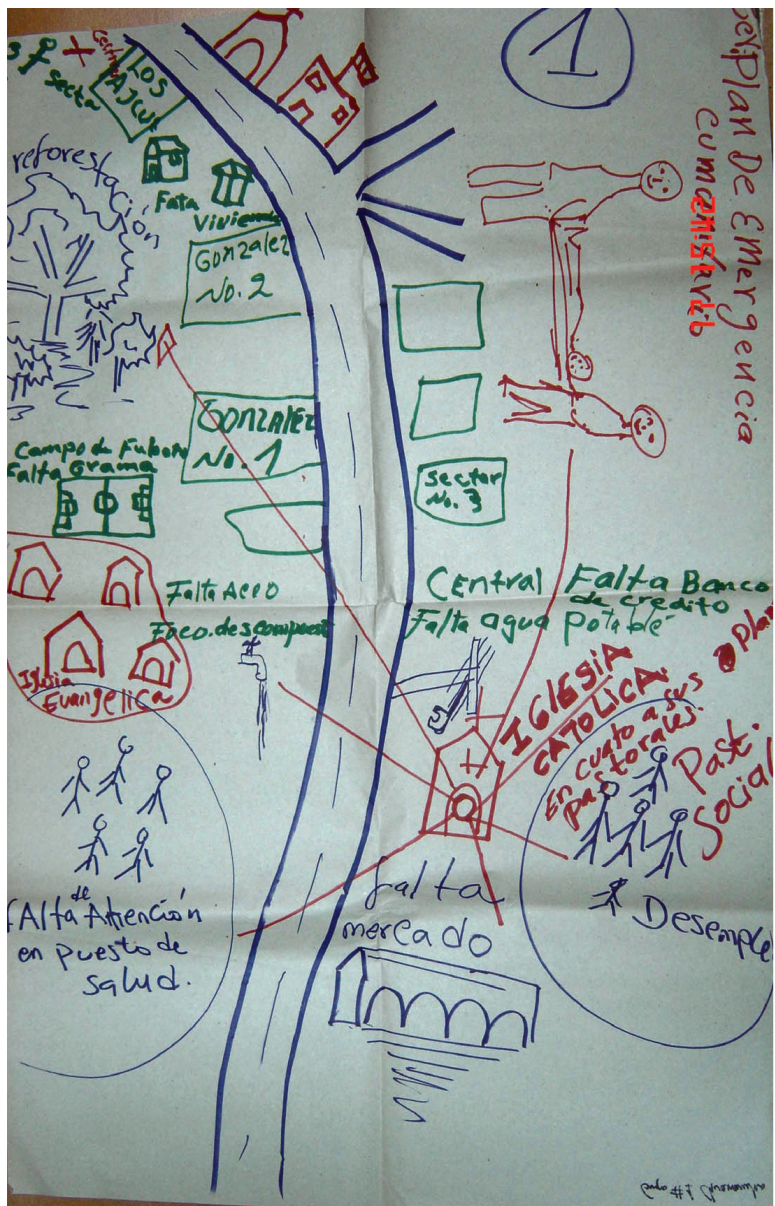 1
Plan De Emergencia
secta
LOS
AJCU
reforestación
Fata
Vivienda
Gonzalez
No. 2
GONZALEZ
No. 1
Campo de Futbol
Falta Grama
Sector
No. 3
Falta Aceo
Foco descompuest
Central Falta Banco
de credito
Falta agua potable
Iglesia
Evangelica
IGLESIA
CATOLICA.
En cuato a sus
pastorales.
Plan
Past.
Social
fAlta de Atención
en puesto de
salud.
falta
mercado
Desemple